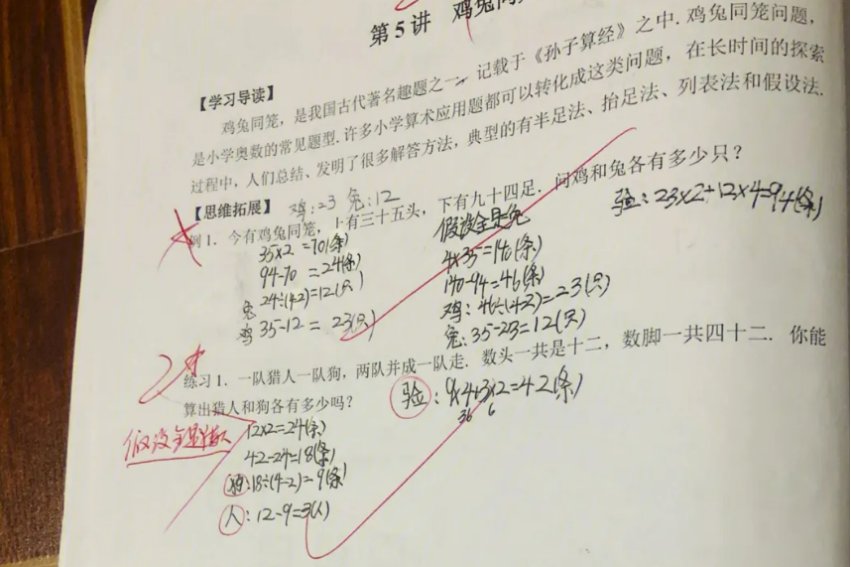 第5讲 鸡兔同
【学习导读】
鸡兔同笼，是我国古代著名趣题之一．记载于《孙子算经》之中．鸡兔同笼问题，
是小学奥数的常见题型．许多小学算术应用题都可以转化成这类问题，在长时间的探索
过程中，人们总结、发明了很多解答方法，典型的有半足法、抬足法、列表法和假设法．
【思维拓展】 鸡：23 兔：12
例1．今有鸡兔同笼，上有三十五头，下有九十四足．问鸡和兔各有多少只？
验：23×2+12×4=94(条)
35×2=70(条)
94-70=24(条)
兔 24÷(4-2)=12(只)
鸡 35-12=23(只)
假设全是兔
4×35=140(条)
140-94=46(条)
鸡：46÷(4-2)=23(只)
兔：35-23=12(只)
练习1．一队猎人一队狗，两队并成一队走．数头一共是十二，数脚一共四十二．你能
算出猎人和狗各有多少吗？
验：9×4+3×2=42(条)
36 6
假设全是猎人
12×2=24(条)
42-24=18(条)
狗：18÷(4-2)=9(条)
人：12-9=3(人)